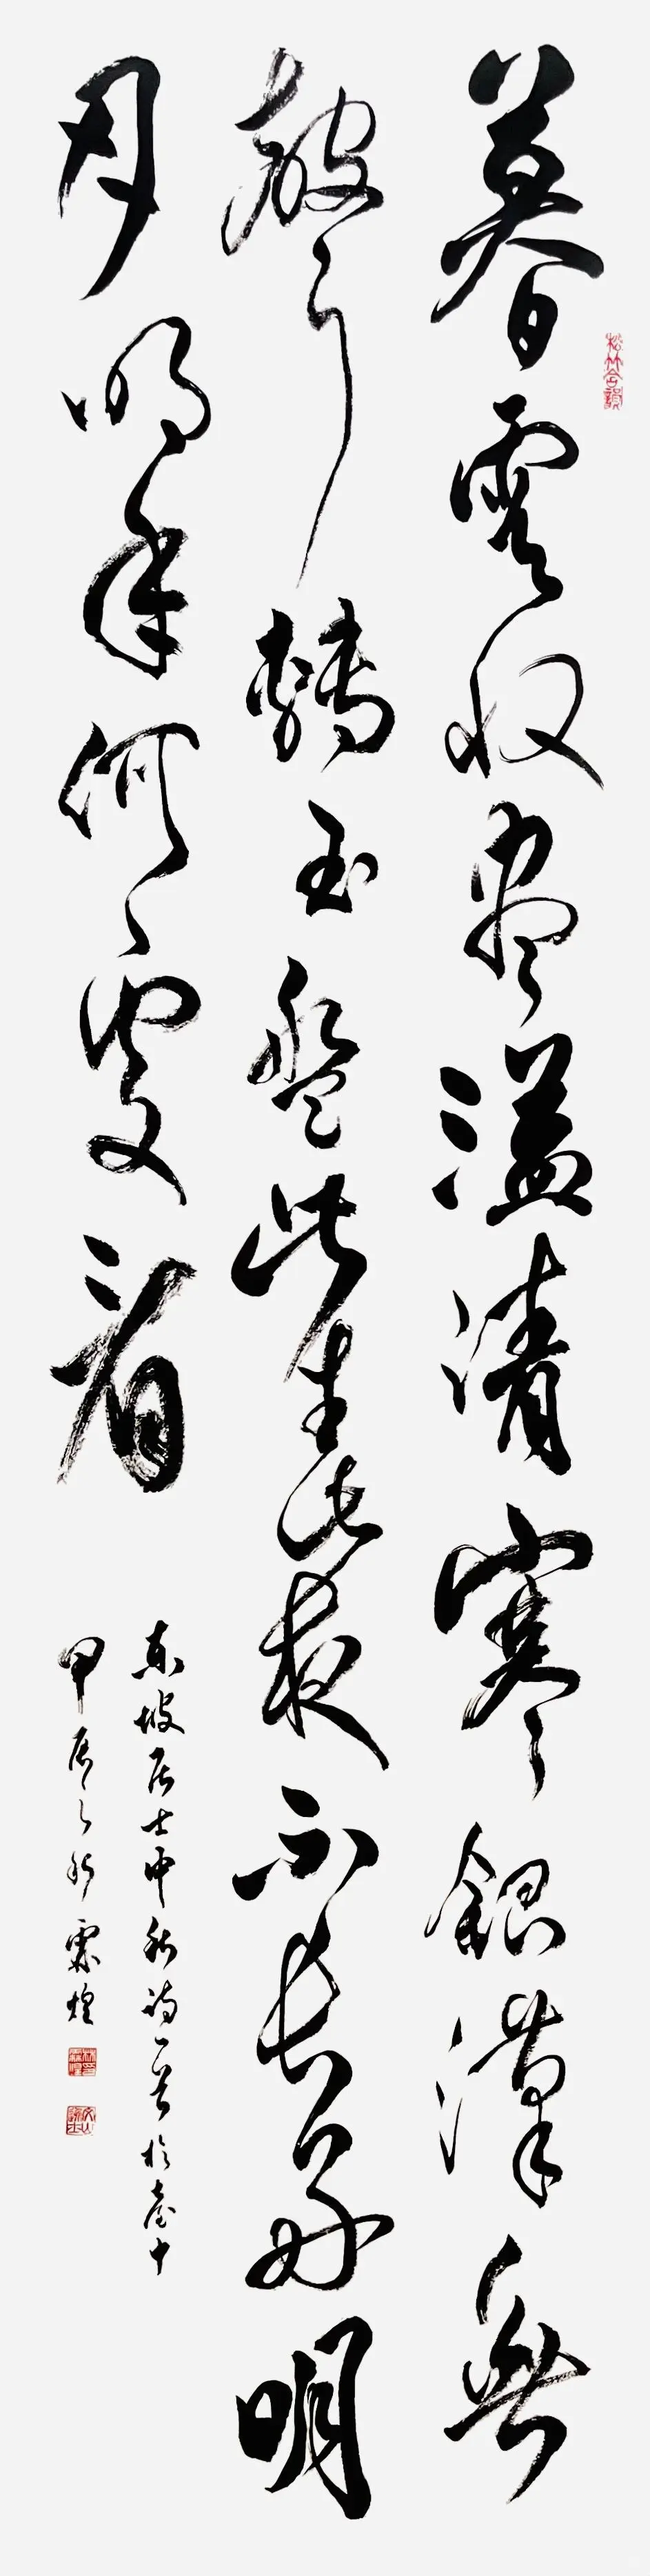 暮雲收盡溢清寒銀漢無
聲轉玉盤此生此夜不長好明
月明年何處看
東坡居士中秋詩一首於臺中
甲辰之秋霖煌
松竹合韻